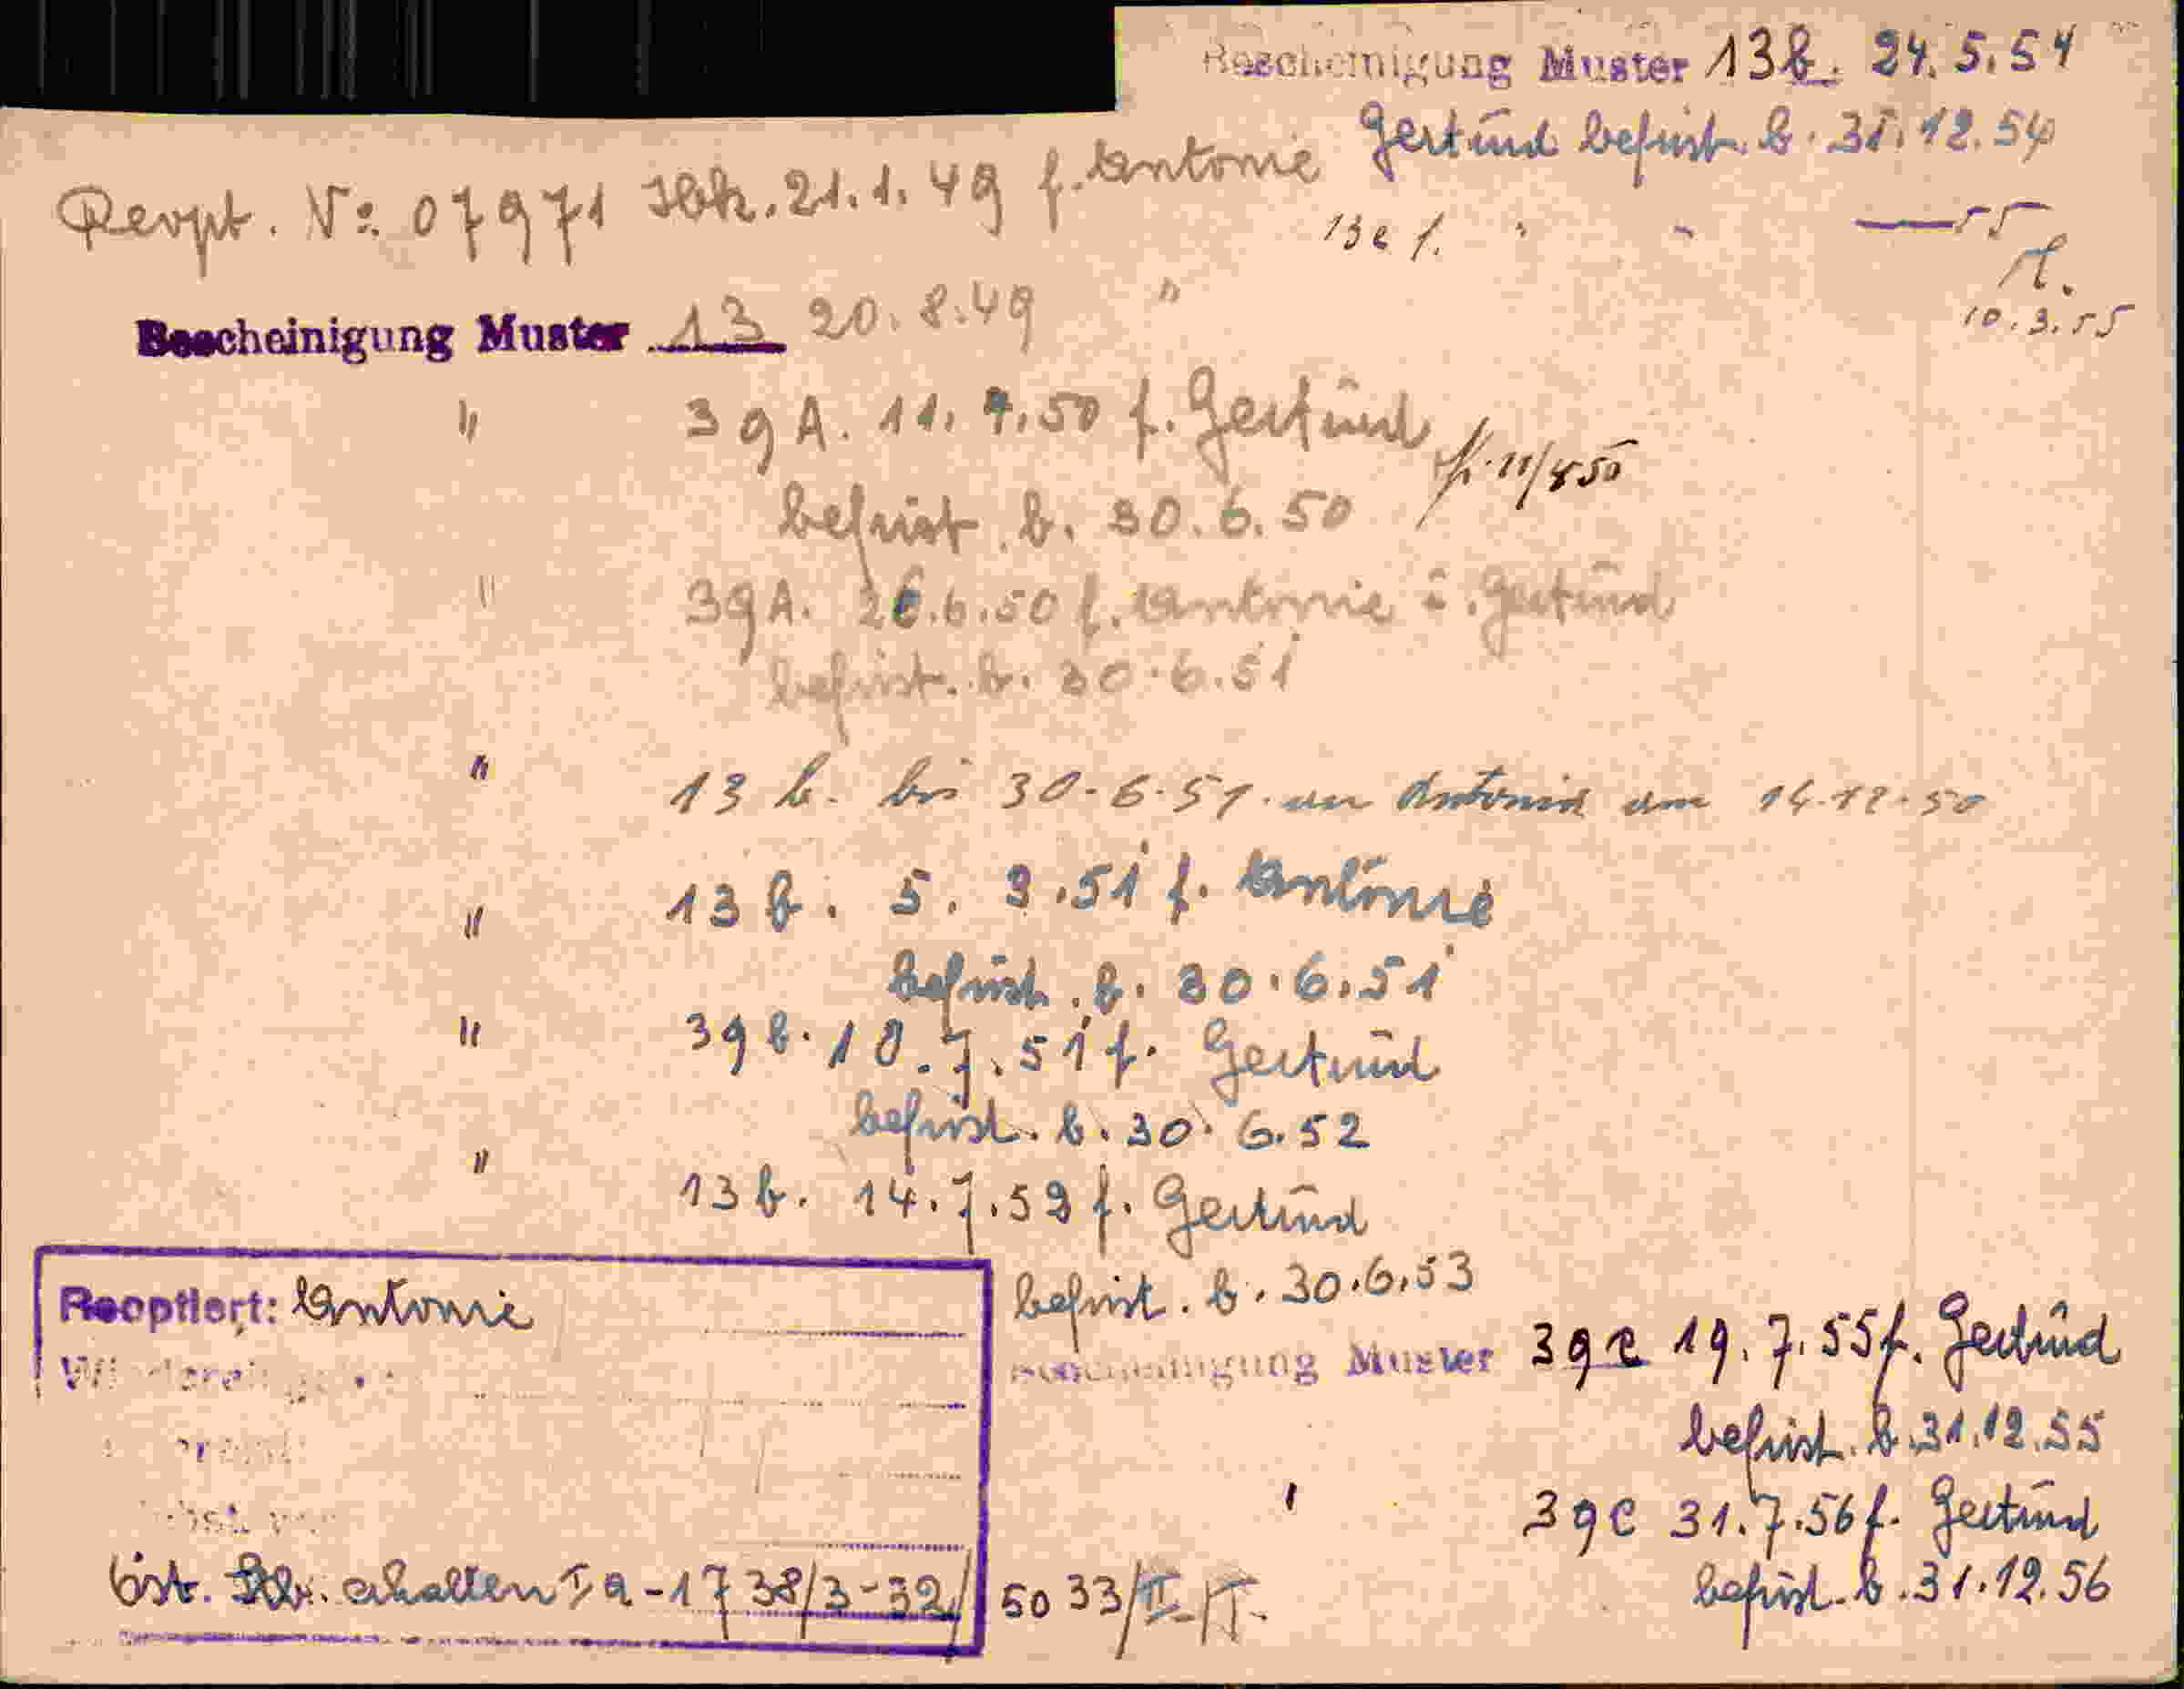 Bescheinigung Muster 13b. 24.5.54
Gertrud befrist. b. 31.12.54
Reopt. No. 07971 Ibk. 21.1.49 f. Antonie
13e f. " " — 55
10.3.55
Bescheinigung Muster 13 20.8.49 "
" 39A. 11.4.50 f. Gertrud
befrist. b. 30.6.50
" 39A. 26.6.50 f. Antonie u. Gertrud
befrist. b. 30.6.51
" 13 b. bis 30.6.51. an Antonie am 14.12.50
" 13 b. 5. 3.51 f. Antonie
befrist. b. 30.6.51
" 39 b. 10.7.51 f. Gertrud
befrist. b. 30.6.52
" 13 b. 14.7.52 f. Gertrud
befrist. b. 30.6.53
Reoptiert: Antonie
Bescheinigung Muster 39c 19.7.55 f. Gertrud
befrist. b. 31.12.55
39c 31.7.56 f. Gertrud
befrist. b. 31.12.56
öst. erhalten Ia-1738/3-32/5033/II